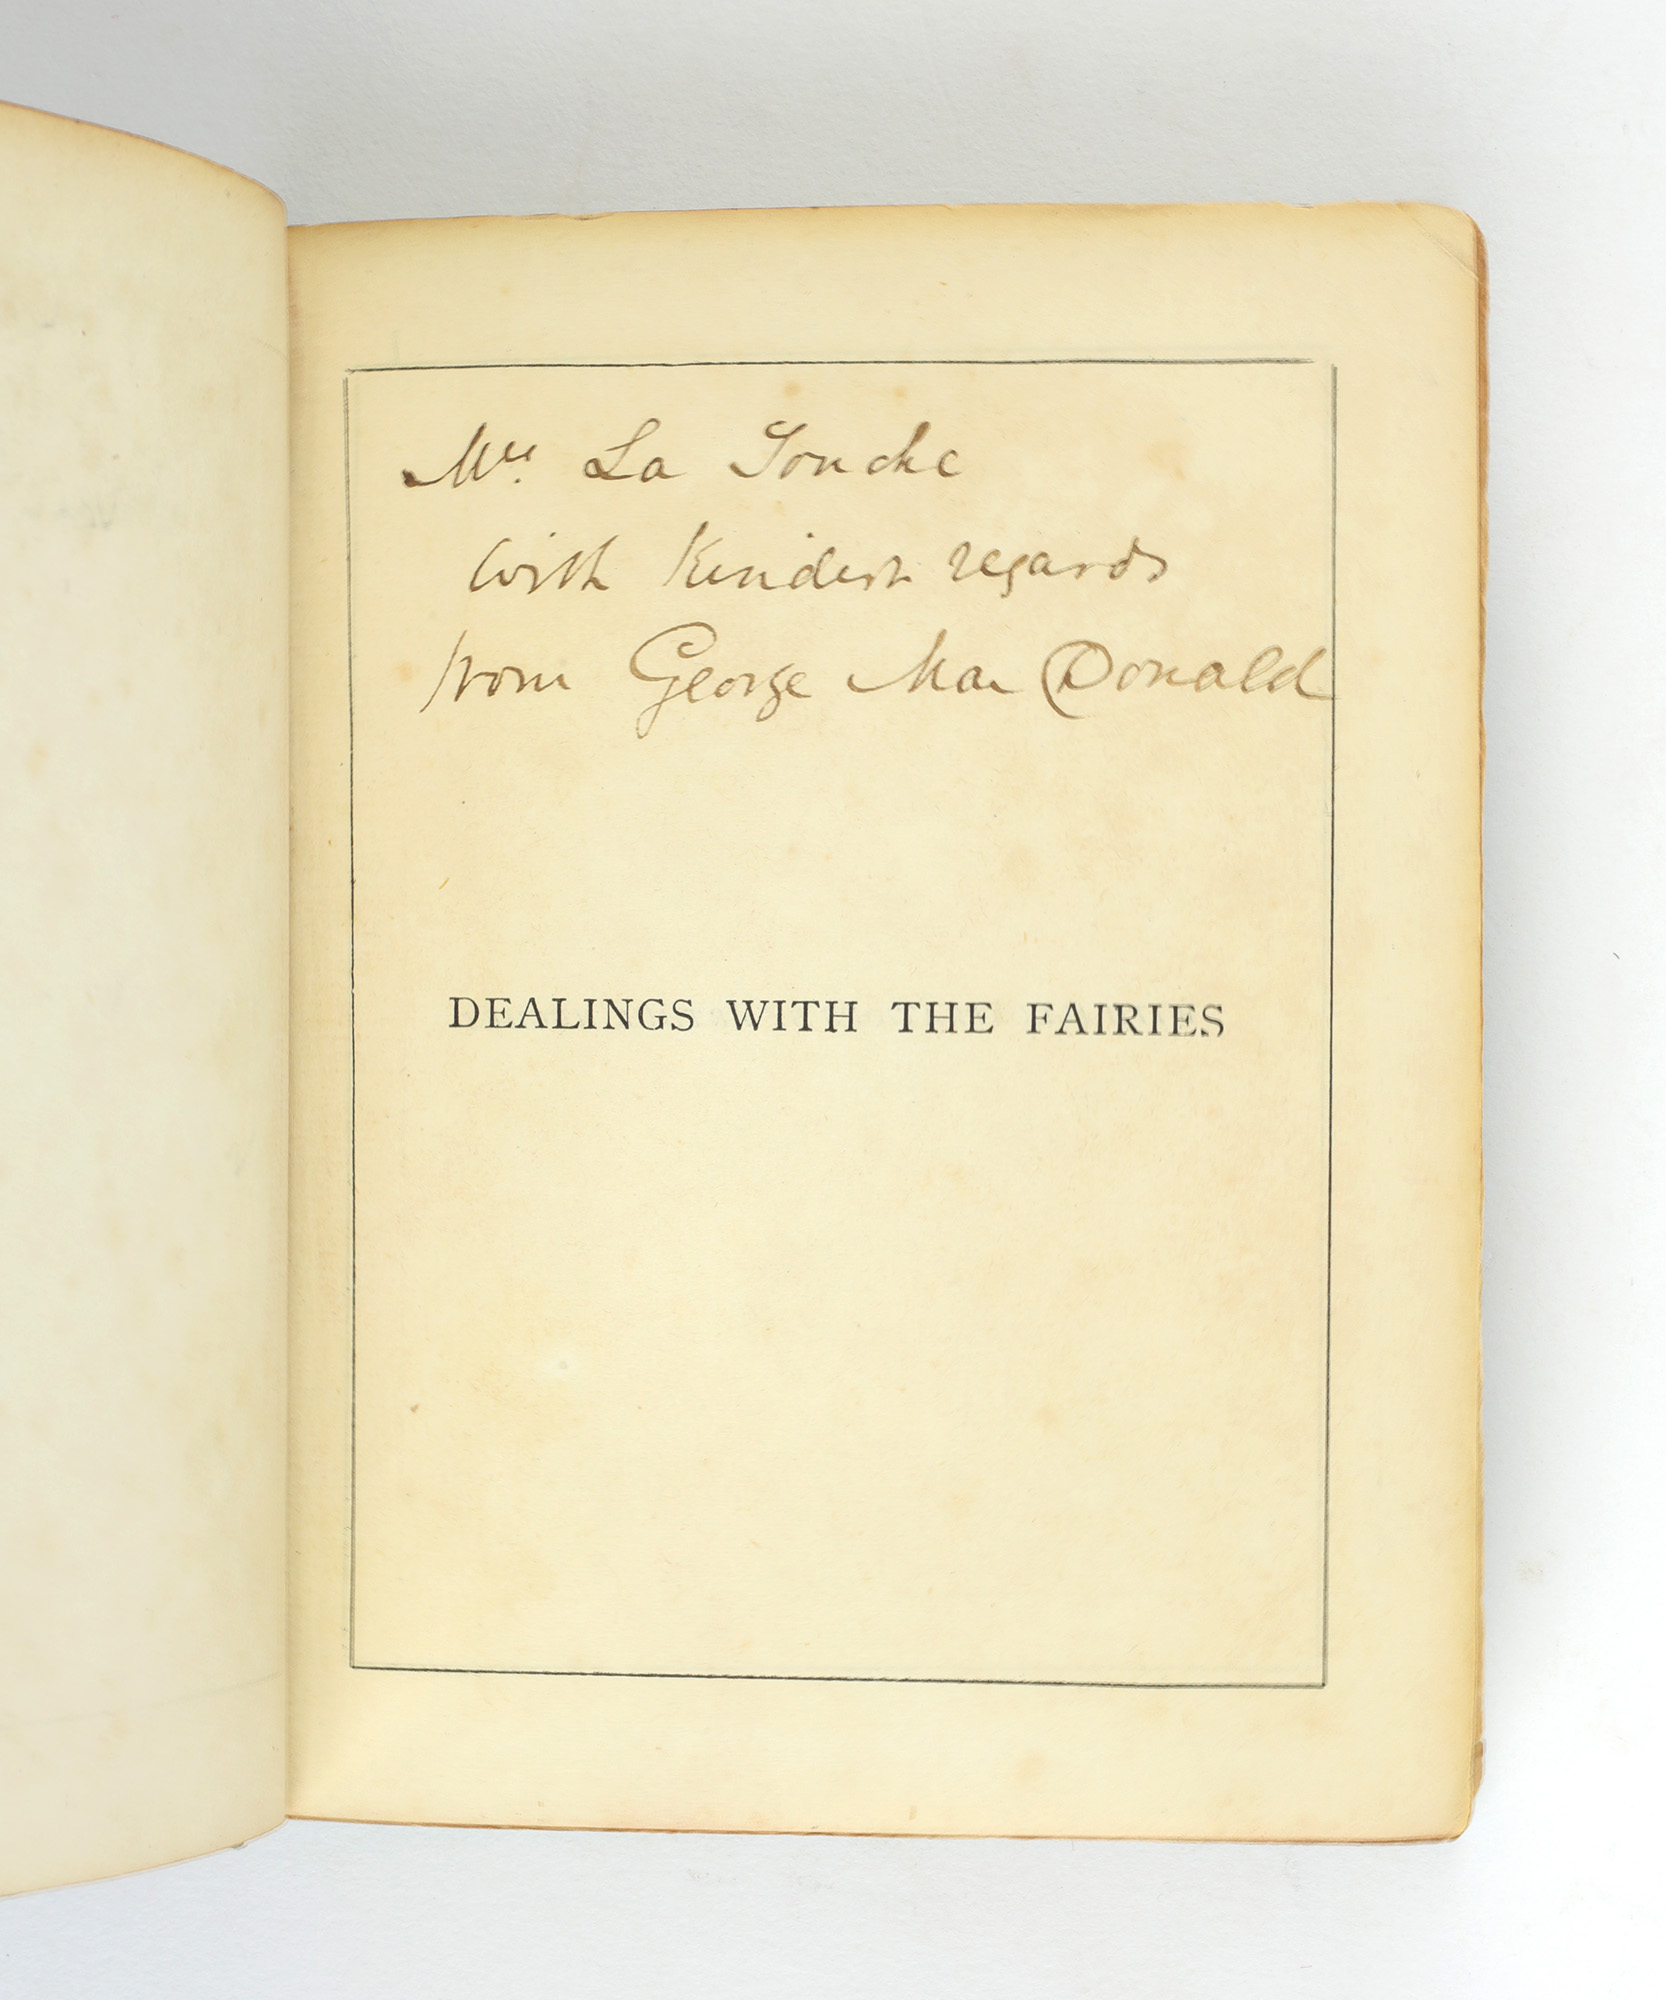 Mrs. La Touche
with kindest regards
from George MacDonald
DEALINGS WITH THE FAIRIES